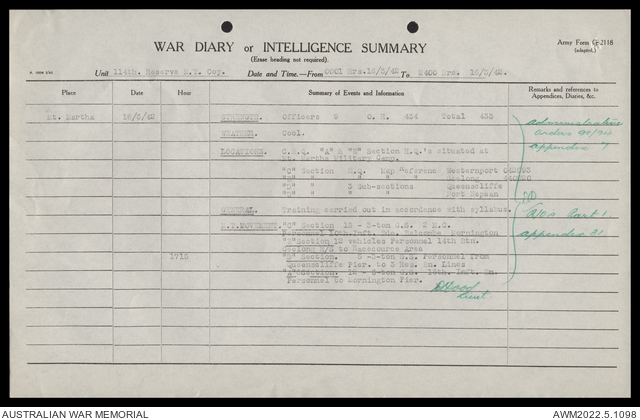 Army Form C. 2118
(adapted.)
WAR DIARY or INTELLIGENCE SUMMARY
(Erase heading not required).
Unit 114th. Reserve M.T. Coy. Date and Time.—From 0001 Hrs. 16/5/42 To 2400 Hrs. 16/5/42.
Place Date Hour Summary of Events and Information Remarks and references to Appendices, Diaries, &c.
Mt. Martha 16/5/42 STRENGTH. Officers 9 O.R. 424 Total 433
WEATHER. Cool.
LOCATIONS. C.H.Q. "A" & "B" Section H.Q.'s situated at
Mt. Martha Military Camp.
"C" Section H.Q. Map Reference Westernport
" " " " " Geelong
" " 3 Sub-sections Queenscliffe
" " Port Nepean
GENERAL. Training carried out in accordance with syllabus.
M.T. MOVEMENT. "C" Section 12 - 3-ton G.S.
Personnel Inft. Bde. Balcombe Mornington
Section 12 vehicles Personnel 14th Btn.
Geelong R/S to Racecourse Area
1715 Section. 5 -3-ton G.S. Personnel from
Queenscliffe Pier to 3 Res. Bn. Lines
Section. 12 - 3-ton G.S. 16th. Inft. Bn.
Personnel to Mornington Pier.
Administrative
Orders
appendix
Part 1
appendix 21
Wood
Lieut.
AUSTRALIAN WAR MEMORIAL
AWM2022.5.1098